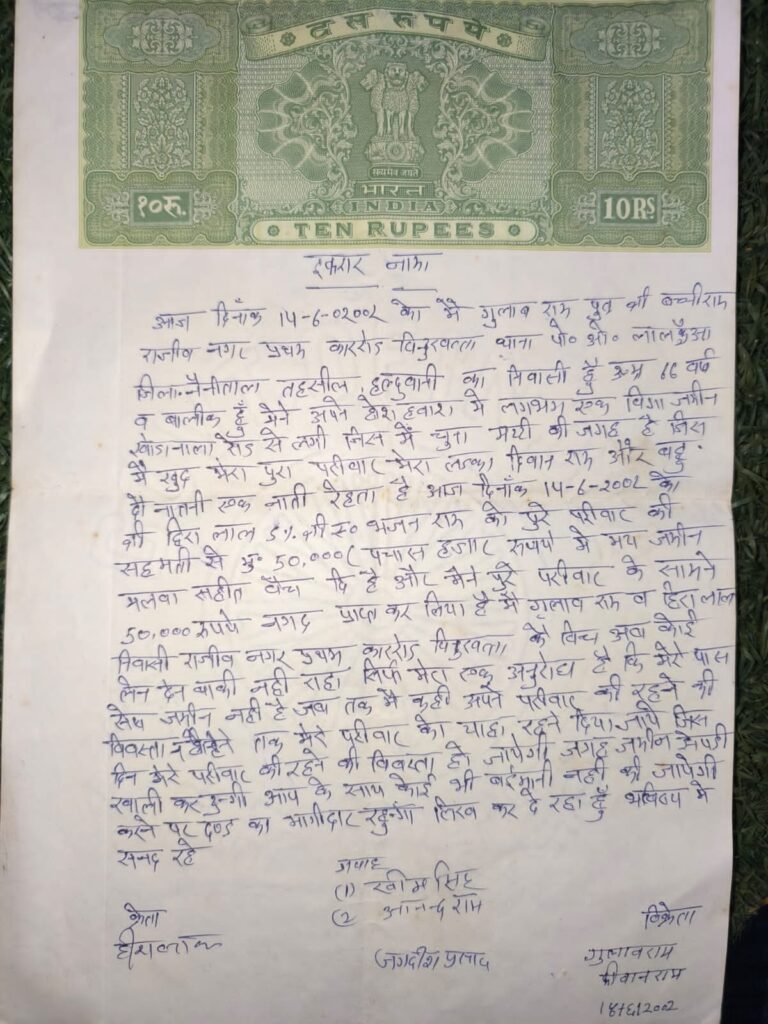 दस रुपये
सत्यमेव जयते
भारत
INDIA
१०रु.
10RS
TEN RUPEES
इकरार नामा
आज दिनाँक 14-6-02002 को मैं गुलाब राम पुत्र श्री बच्चीराम
राजीव नगर प्रथम काररोड बिन्दुखत्ता थाना पो० ओ० लालकुँआ
जिला-नैनीताल तहसील हल्दुवानी का निवासी हुँ उम्र 66 वर्ष
व बालीक हुँ मैने अपने होश हवाश में लगभग एक विगा जमीन
रोड से लगी जिस में की जगह है जिस
में खुद मेरा पुरा परीवार मेरा लड़का दिवान राम और बहु
दो नातनी एक नाती रेहता है आज दिनाँक 14-6-2002 को
श्री हिरा लाल S/० श्री स्व० भजन राम को पुरे परीवार की
सहमती से रु० 50,000/ पचास हजार रुपये में मय जमीन
मलवा सहीत बैचा दि है और मैने पुरे परीवार के सामने
50,000 रुपये नगद प्राप्त कर लिया है मैं गुलाब राम व हिरा लाल
निवासी राजीव नगर प्रथम काररोड बिन्दुखत्ता के विच अब कोई
लिन देन बाकी नही राहा सिर्फ मेरा एक अनुरोध है कि मेरे पास
सेष जमीन नही है जब तक मै कही अपने परीवार की रहने की
विवस्ता तक मेरे परीवार को याहा रहने दिया जाये जिस
दिन मेरे परीवार की रहने की विवस्ता हो जायेगी जगह जमीन आपकी
खाली कर दुन्गी आप के साथ कोई भी बईमानी नही की जायेगी
करने पर दण्ड का भागीदार रहुन्गा लिख कर दे रहा हुँ भविष्य में
सनद रहे
गवाह
(1) खीम सिंह
(2 आनन्द राम
क्रेता
हीरालाल
जगदीश प्रसाद
विक्रेता
गुलाबराम
दीवानराम
14/6/2002